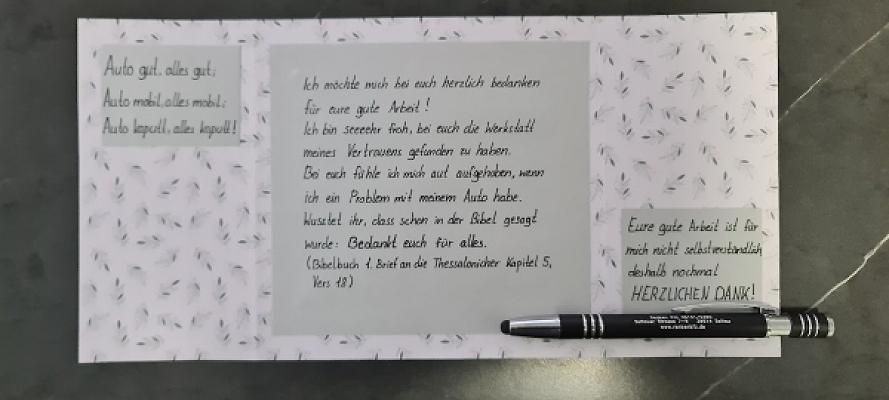 Auto gut, alles gut;
Auto mobil, alles mobil;
Auto kaputt, alles kaputt!
Ich möchte mich bei euch herzlich bedanken
für eure gute Arbeit!
Ich bin seeeehr froh, bei euch die Werkstatt
meines Vertrauens gefunden zu haben.
Bei euch fühle ich mich gut aufgehoben, wenn
ich ein Problem mit meinem Auto habe.
Wusstet ihr, dass schon in der Bibel gesagt
wurde: Bedankt euch für alles.
(Bibelbuch 1. Brief an die Thessalonicher Kapitel 5,
Vers 18)
Eure gute Arbeit ist für
mich nicht selbstverständlich,
deshalb nochmal
HERZLICHEN DANK!